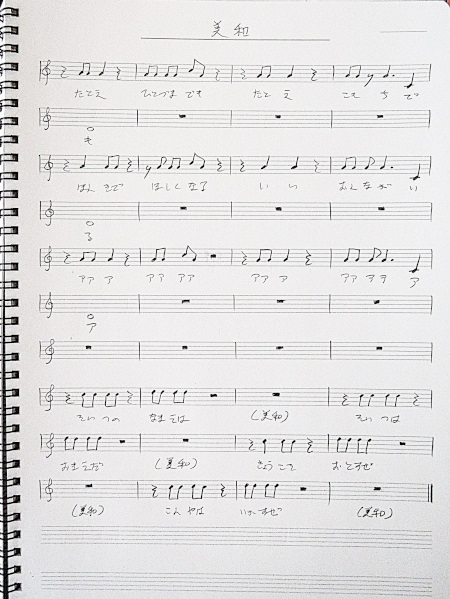 美和
たとえ ひとづま でも たとえ こもちで
も
ほんきで ほしくなる いい おんながい
る
アア ア アア アア アア ア アア アア ア
ア
そいつの なまえは (美和) そいつは
おまえだ (美和) きっとこで おとすぜ
(美和) こんやは いただぜ (美和)